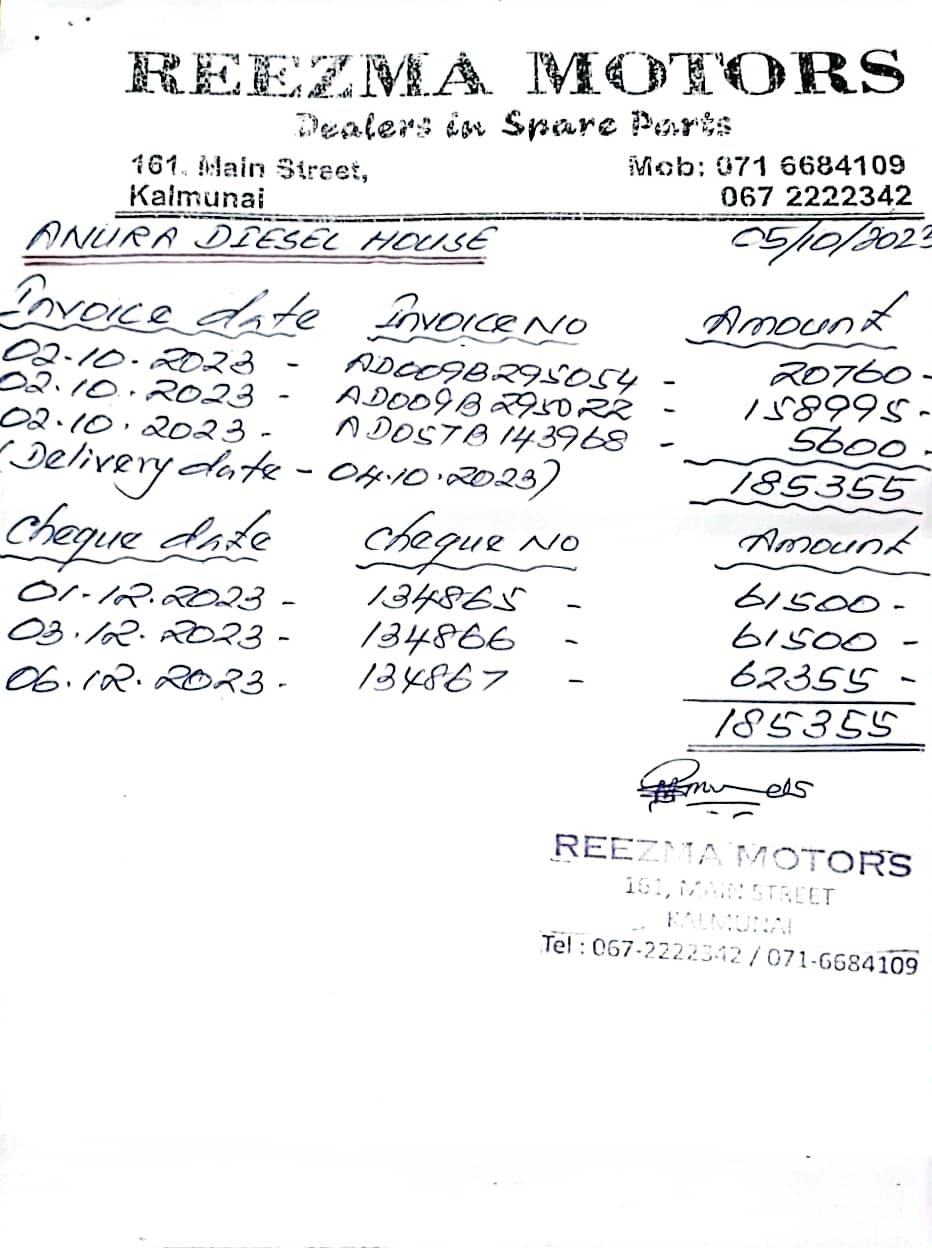 REEZMA MOTORS
Dealers in Spare Parts
161, Main Street, Mob: 071 6684109
Kalmunai 067 2222342
ANURA DIESEL HOUSE 05/10/2023
Invoice date Invoice No Amount
02-10-2023 - AD009B295054 - 20760-
02.10.2023 - AD009B295022 - 158995-
02.10.2023 - AD057B143968 - 5600-
(Delivery date - 04.10.2023) 185355
Cheque date Cheque No Amount
01-12.2023 - 134865 - 61500-
03.12.2023 - 134866 - 61500-
06.12.2023 - 134867 - 62355-
185355
REEZMA MOTORS
161, MAIN STREET
KALMUNAI
Tel : 067-2222342 / 071-6684109